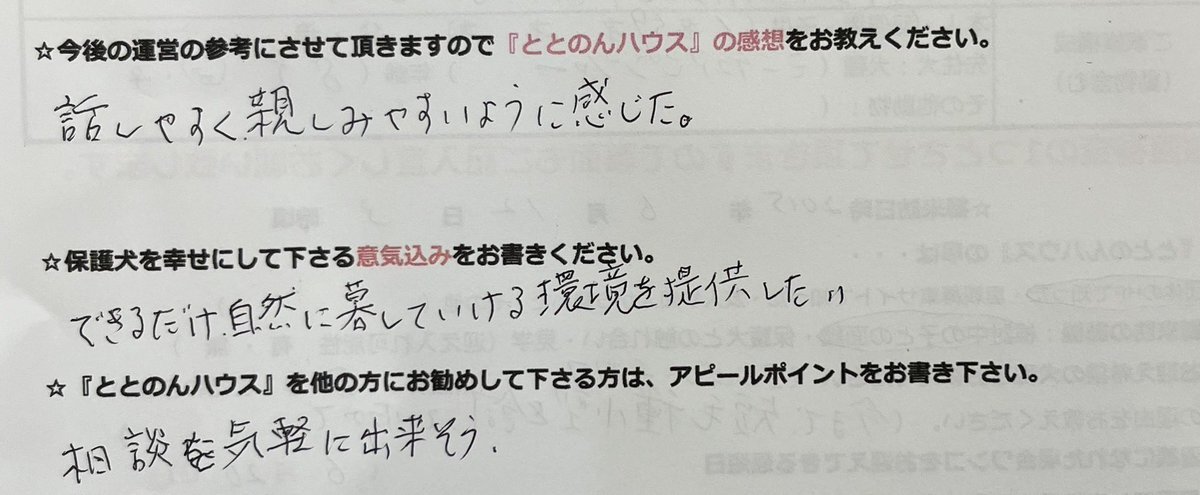 ☆今後の運営の参考にさせて頂きますので『ととのんハウス』の感想をお教えください。
話しやすく親しみやすいように感じた。
☆保護犬を幸せにして下さる意気込みをお書きください。
できるだけ自然に暮していける環境を提供したい
☆『ととのんハウス』を他の方にお勧めして下さる方は、アピールポイントをお書き下さい。
相談を気軽に出来そう.